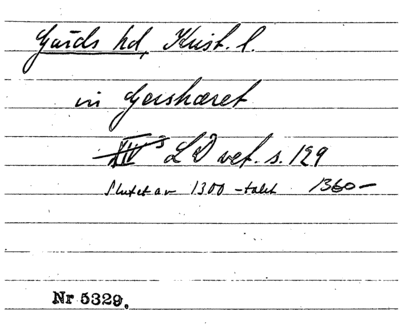 Gäids hd, Krist. l.
in Geishæret
XIV 3 LD vet. s. 129
Slutet av 1300-talet 1360-
Nr 5329.